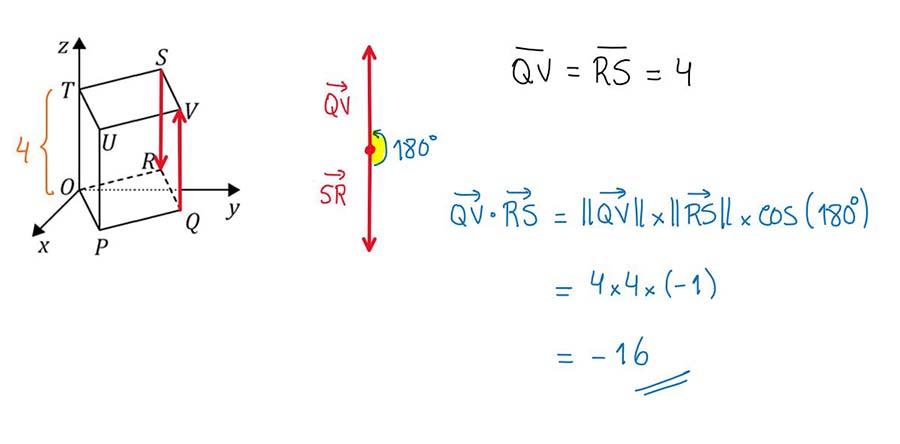 z
S
T
V
U
4
R
O
y
Q
x
P
QV⃗
180°
SR⃗
Q̅V̅ = R̅S̅ = 4
QV⃗ · RS⃗ = ||QV⃗|| × ||RS⃗|| × cos (180°)
= 4 × 4 × (-1)
= -16